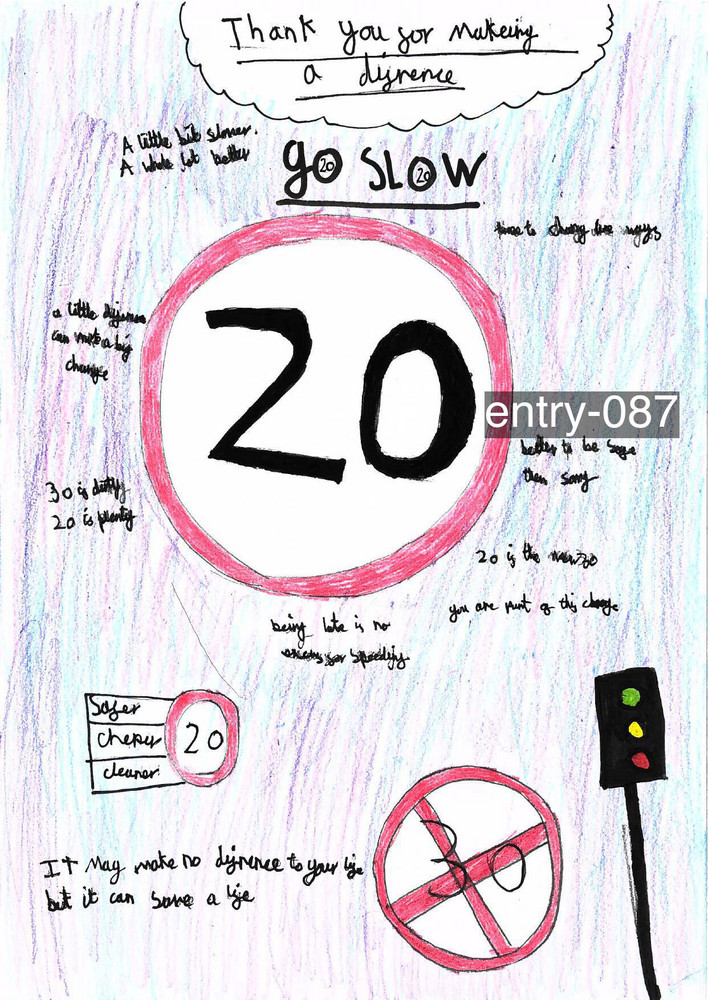 Thank you for makeing
a difrence
A little bit slower.
A whole lot better
go SLOW
20
20
time to
a little
can make a big
change
20
entry-087
better to be
then sorry
30 is
20 is plenty
20 is the new 30
you are part of this change
being late is no
for speeding
Safer
cheper
cleaner
20
30
It May make no difrence to your life
but it can save a life